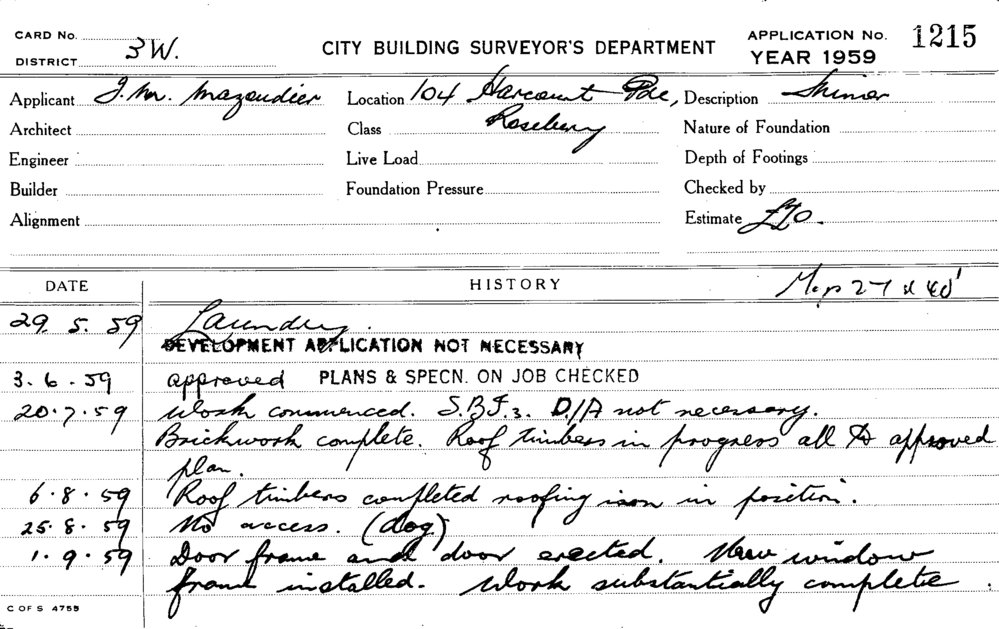 CARD No.
DISTRICT 3W.
CITY BUILDING SURVEYOR'S DEPARTMENT
APPLICATION No. 1215
YEAR 1959
Applicant J. M. Mazoudier Location 104 Harcourt Pde, Description Minor
Architect Class Rosebery Nature of Foundation
Engineer Live Load Depth of Footings
Builder Foundation Pressure Checked by
Alignment Estimate £70.
DATE HISTORY 27 x 40'
29. 5. 59 Laundry.
DEVELOPMENT APPLICATION NOT NECESSARY
3. 6. 59 approved PLANS & SPECN. ON JOB CHECKED
20. 7. 59 Work commenced. S.B.F.3. D/A not necessary.
Brickwork complete. Roof timbers in progress all to approved
plan.
6. 8. 59 Roof timbers completed roofing iron in position.
25. 8. 59 No access. (dog)
1. 9. 59 Door frame and door erected. New window
frame installed. Work substantially complete.
C OF S 4755